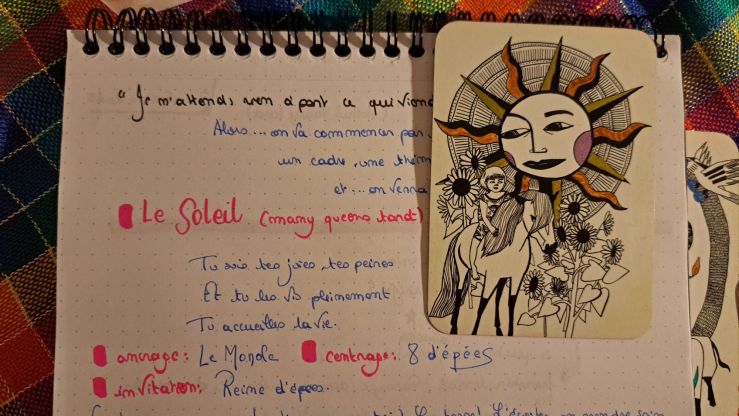 "Je m'attends rien à part ce qui vien
Alors... on va commencer par
un cadre, une thém
et... on verra
Le Soleil (mamy queens tarot)
Tu sais tes joies, tes peines
Et tu les vis pleinement
Tu accueilles la vie.
ancrage: Le Monde centrage: 8 d'épées
invitation: Reine d'épées.